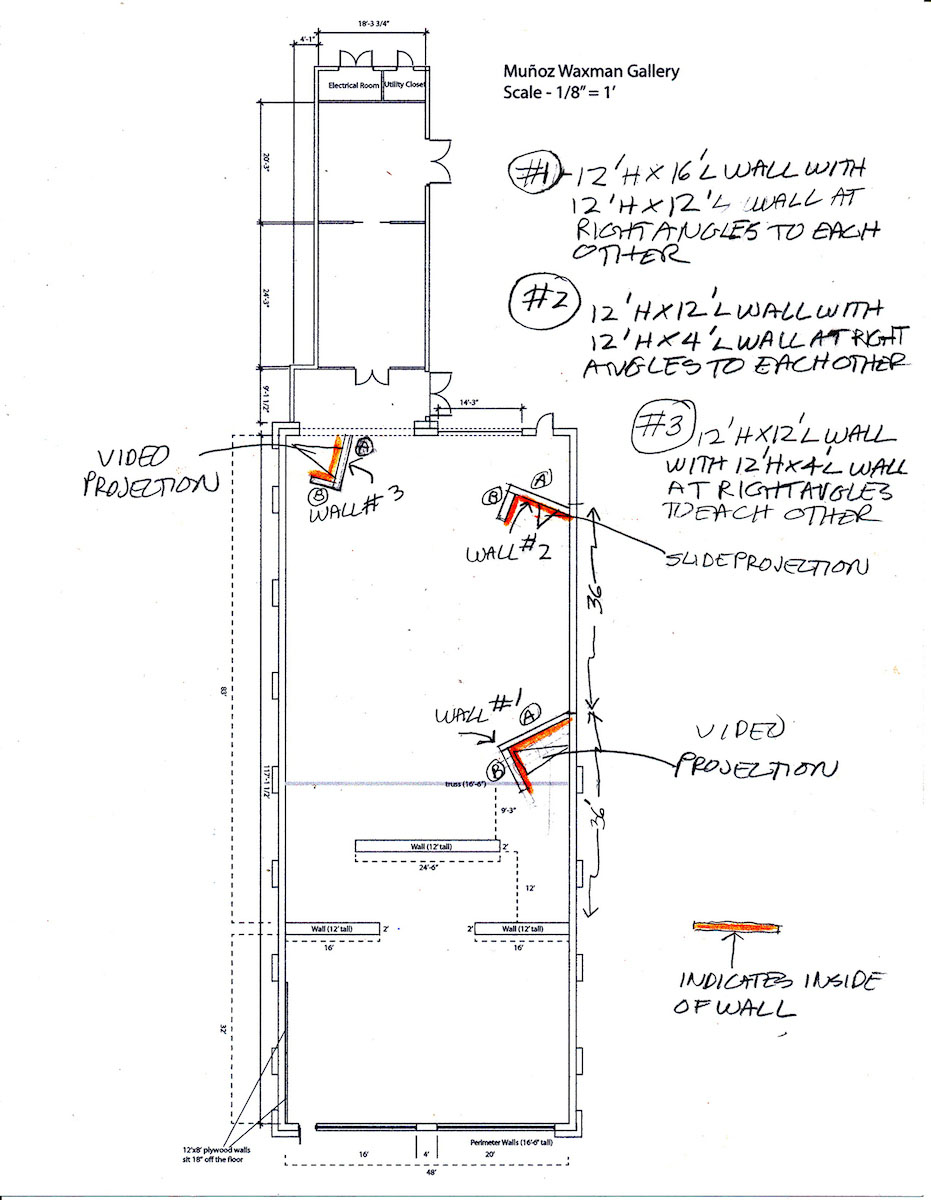 18'-3 3/4"
4'-1"
Electrical Room
Utility Closet
Muñoz Waxman Gallery
Scale - 1/8" = 1'
20'-3"
24'-3"
9'-1 1/2"
14'-3"
#1 - 12'H X 16'L WALL WITH
12'H X 12'L WALL AT
RIGHT ANGLES TO EACH
OTHER
#2 12'H X 12'L WALL WITH
12'H X 4'L WALL AT RIGHT
ANGLES TO EACH OTHER
#3 12'H X 12'L WALL
WITH 12'H X 4'L WALL
AT RIGHT ANGLES
TO EACH OTHER
VIDEO
PROJECTION
A
B
WALL #3
A
B
WALL #2
SLIDE PROJECTION
36
WALL #1
A
B
VIDEO
PROJECTION
36'
83'
117'-11 1/2"
truss (16'-6")
9'-3"
Wall (12' tall)
2'
24'-6"
12'
Wall (12' tall)
2'
16'
2'
Wall (12' tall)
16'
INDICATES INSIDE
OF WALL
32'
12'x8' plywood walls
sit 18" off the floor
Perimeter Walls (16'-6" tall)
16'
4'
20'
48'